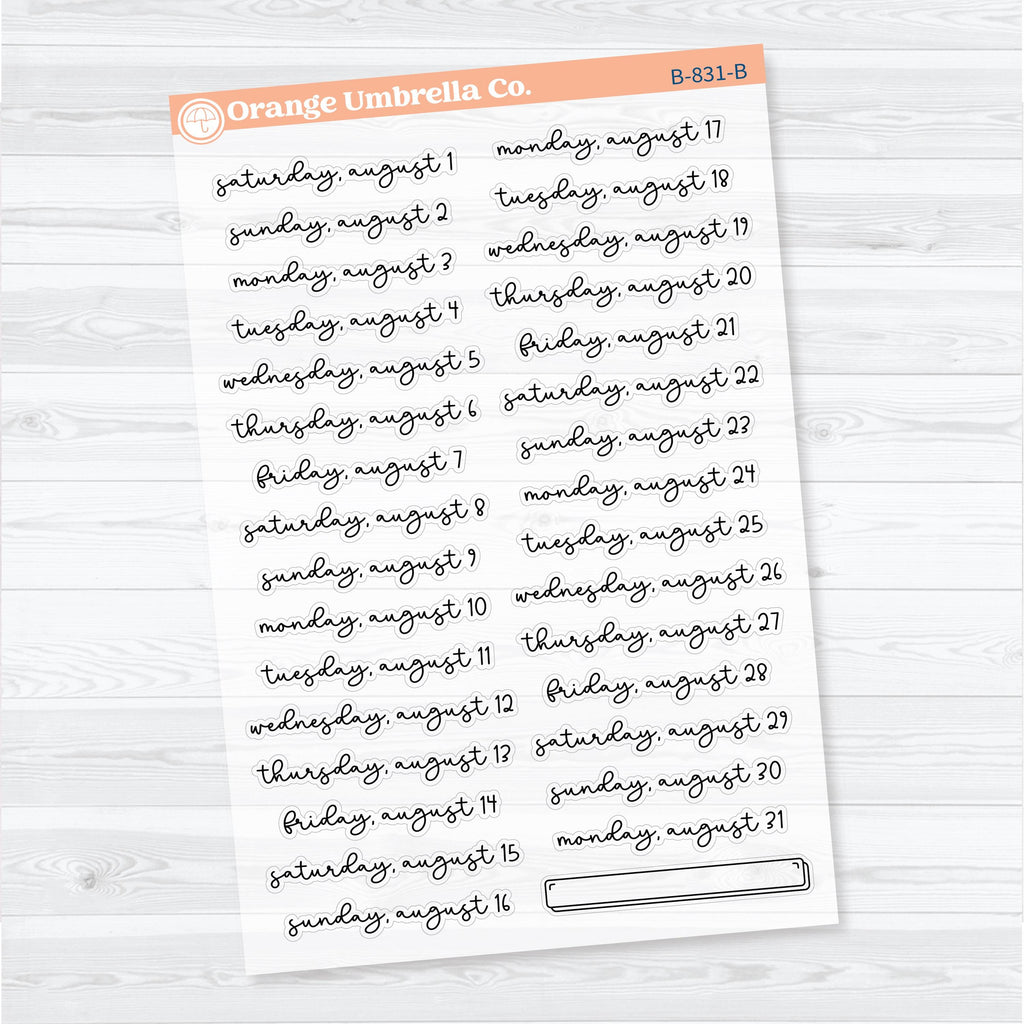 Orange Umbrella Co.
B-831-B
saturday, august 1
sunday, august 2
monday, august 3
tuesday, august 4
wednesday, august 5
thursday, august 6
friday, august 7
saturday, august 8
sunday, august 9
monday, august 10
tuesday, august 11
wednesday, august 12
thursday, august 13
friday, august 14
saturday, august 15
sunday, august 16
monday, august 17
tuesday, august 18
wednesday, august 19
thursday, august 20
friday, august 21
saturday, august 22
sunday, august 23
monday, august 24
tuesday, august 25
wednesday, august 26
thursday, august 27
friday, august 28
saturday, august 29
sunday, august 30
monday, august 31